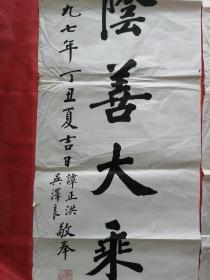 陰善大乘
九七年丁丑夏吉日
譚正洪
吳澤良
敬奉